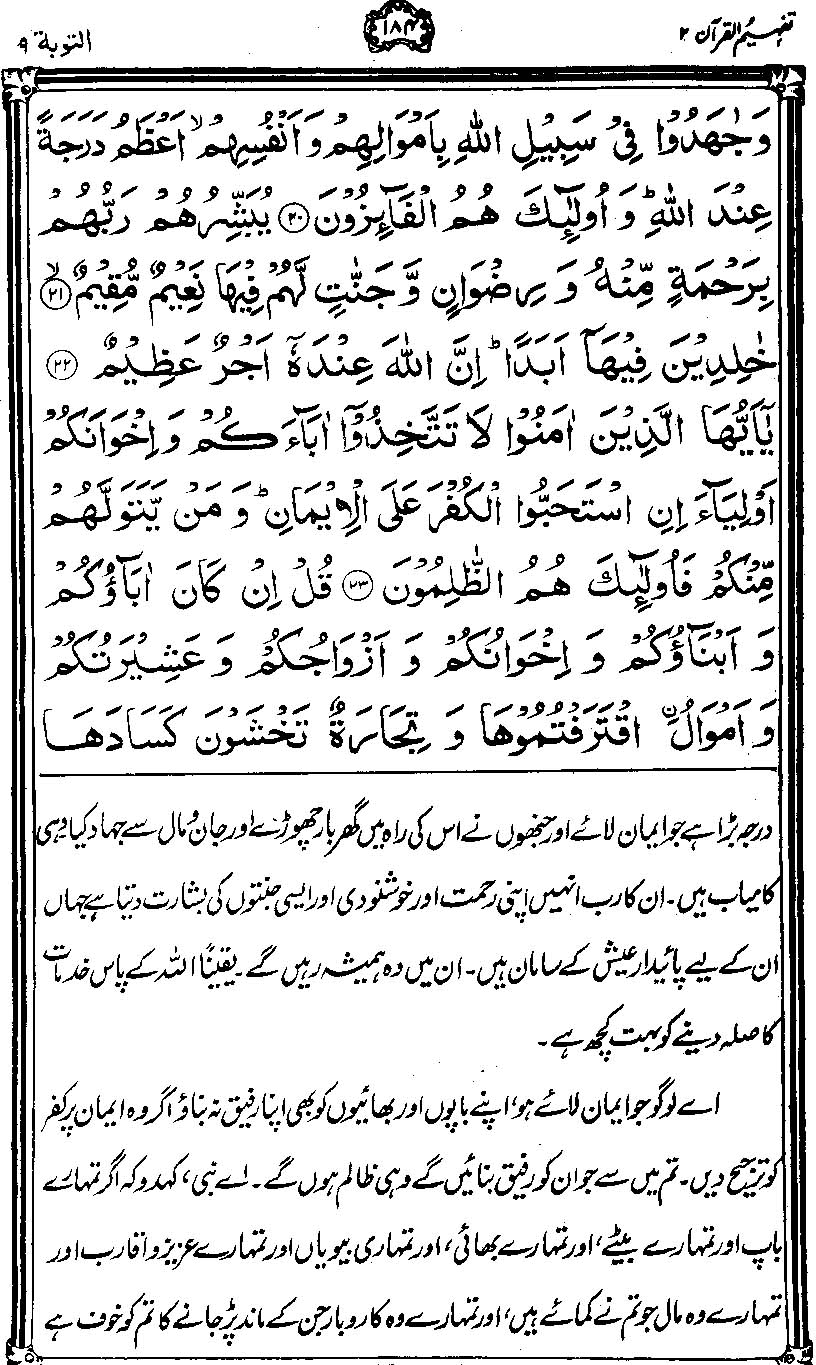 تفہیم القرآن ۲
۱۸۴
التوبة ۹
وَجٰهَدُوْا فِیْ سَبِیْلِ اللهِ بِاَمْوَالِهِمْ وَاَنْفُسِهِمْ ۙ اَعْظَمُ دَرَجَةً
عِنْدَ اللهِ ؕ وَ اُولٰٓئِكَ هُمُ الْفَآئِزُوْنَ ﴿۲۰﴾ یُبَشِّرُهُمْ رَبُّهُمْ
بِرَحْمَةٍ مِّنْهُ وَ رِضْوَانٍ وَّ جَنّٰتٍ لَّهُمْ فِیْهَا نَعِیْمٌ مُّقِیْمٌ ۙ﴿۲۱﴾
خٰلِدِیْنَ فِیْهَاۤ اَبَدًا ؕ اِنَّ اللهَ عِنْدَهٗۤ اَجْرٌ عَظِیْمٌ ﴿۲۲﴾
یٰۤاَیُّهَا الَّذِیْنَ اٰمَنُوْا لَا تَتَّخِذُوْۤا اٰبَآءَكُمْ وَاِخْوَانَكُمْ
اَوْلِیَآءَ اِنِ اسْتَحَبُّوا الْكُفْرَ عَلَی الْاِیْمَانِ ؕ وَ مَنْ یَّتَوَلَّهُمْ
مِّنْكُمْ فَاُولٰٓئِكَ هُمُ الظّٰلِمُوْنَ ﴿۲۳﴾ قُلْ اِنْ كَانَ اٰبَآؤُكُمْ
وَ اَبْنَآؤُكُمْ وَ اِخْوَانُكُمْ وَ اَزْوَاجُكُمْ وَ عَشِیْرَتُكُمْ
وَ اَمْوَالُ ۨ اقْتَرَفْتُمُوْهَا وَ تِجَارَةٌ تَخْشَوْنَ كَسَادَهَا
درجہ بڑا ہے جو ایمان لائے اور جنھوں نے اس کی راہ میں گھر بار چھوڑے اور جان و مال سے جہاد کیا وہی
کامیاب ہیں۔ ان کا رب انہیں اپنی رحمت اور خوشنودی اور ایسی جنتوں کی بشارت دیتا ہے جہاں
ان کے لیے پائیدار عیش کے سامان ہیں۔ ان میں وہ ہمیشہ رہیں گے۔ یقیناً اللہ کے پاس خدمات
کا صلہ دینے کو بہت کچھ ہے۔
اے لوگو جو ایمان لائے ہو، اپنے باپوں اور بھائیوں کو بھی اپنا رفیق نہ بناؤ اگر وہ ایمان پر کفر
کو ترجیح دیں۔ تم میں سے جو ان کو رفیق بنائیں گے وہی ظالم ہوں گے۔ اے نبی، کہدو کہ اگر تمہارے
باپ اور تمہارے بیٹے، اور تمہارے بھائی، اور تمہاری بیویاں اور تمہارے عزیز و اقارب اور
تمہارے وہ مال جو تم نے کمائے ہیں، اور تمہارے وہ کاروبار جن کے ماند پڑ جانے کا تم کو خوف ہے